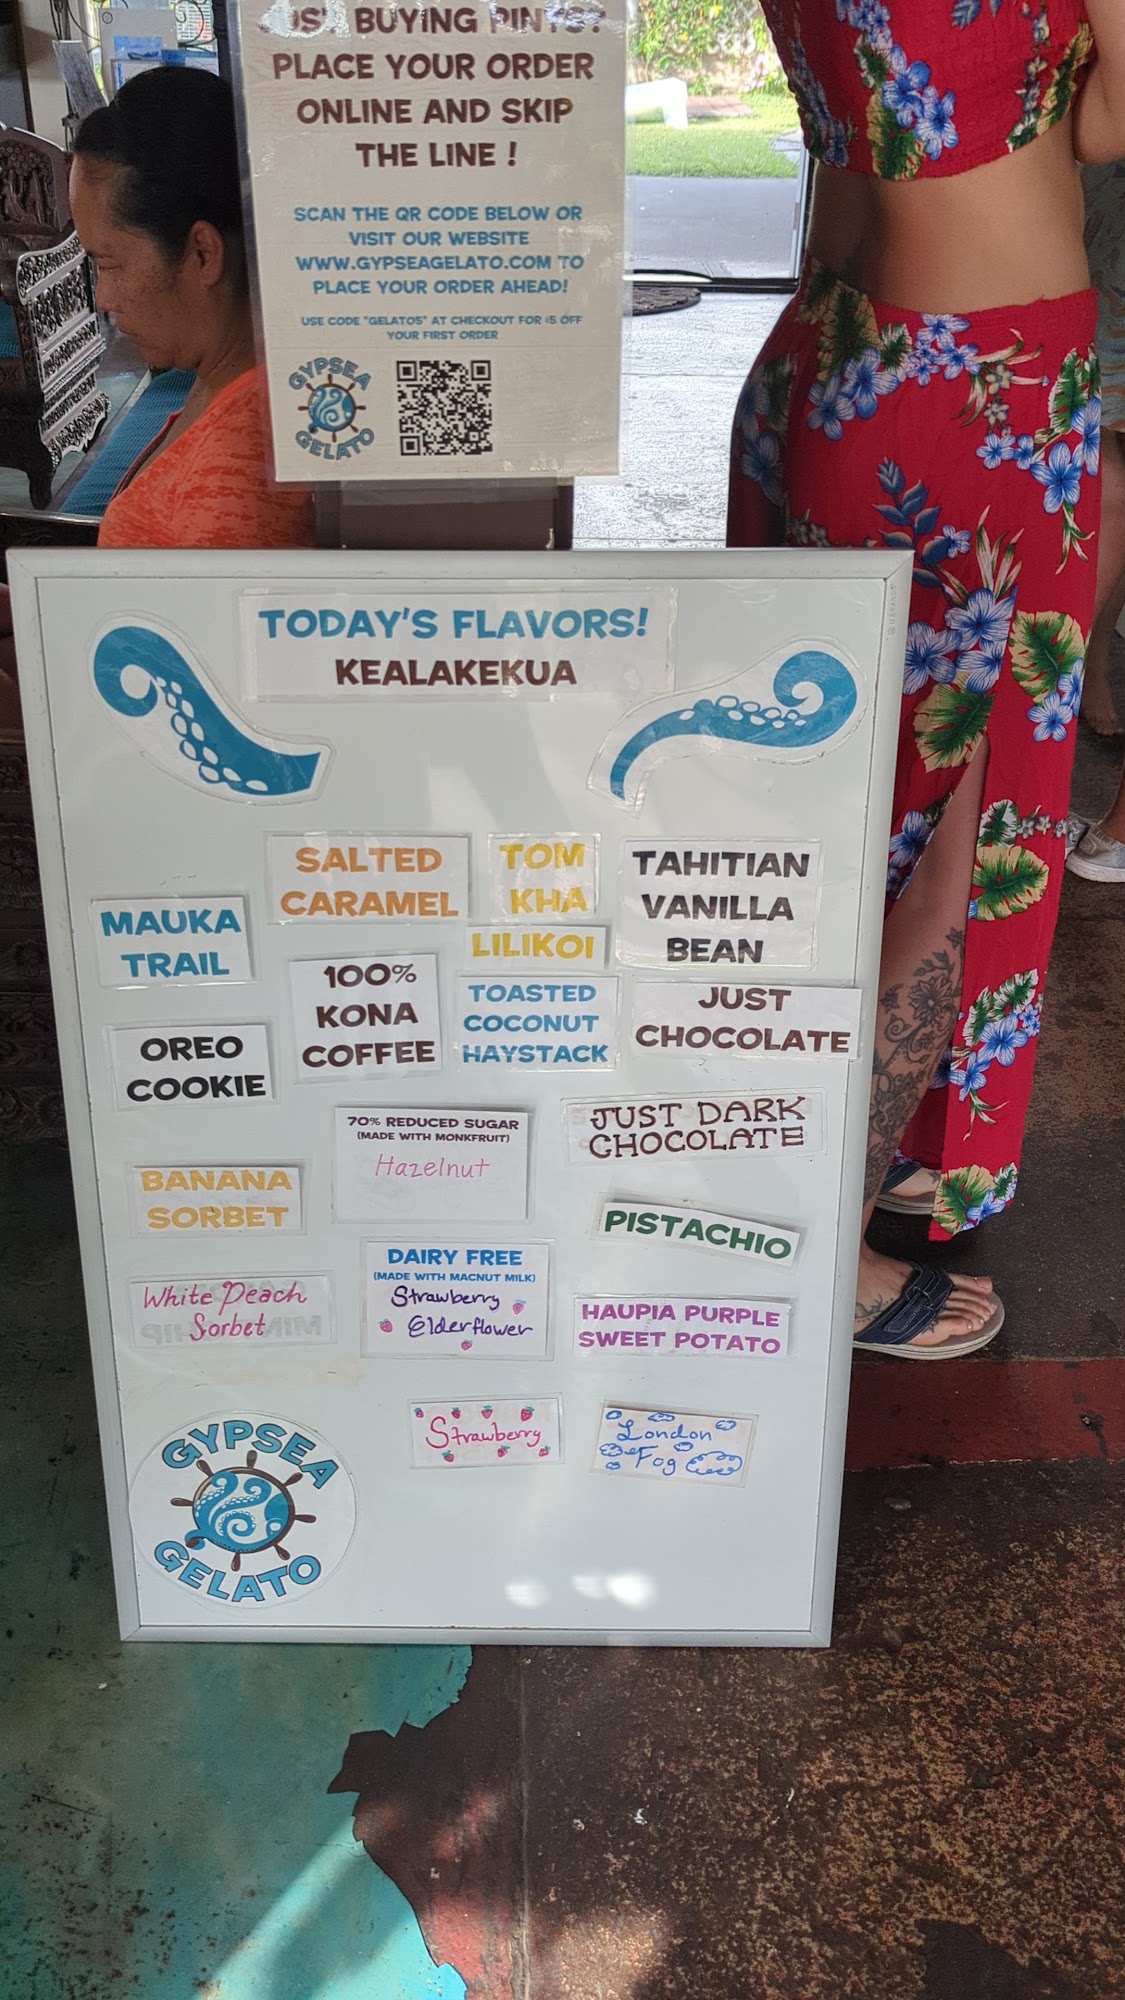 BUYING PINTS?
PLACE YOUR ORDER
ONLINE AND SKIP
THE LINE !
SCAN THE QR CODE BELOW OR
VISIT OUR WEBSITE
WWW.GYPSEAGELATO.COM TO
PLACE YOUR ORDER AHEAD!
USE CODE "GELATO5" AT CHECKOUT FOR $5 OFF
YOUR FIRST ORDER
GYPSEA
GELATO
TODAY'S FLAVORS!
KEALAKEKUA
MAUKA
TRAIL
SALTED
CARAMEL
TOM
KHA
TAHITIAN
VANILLA
BEAN
LILIKOI
100%
KONA
COFFEE
TOASTED
COCONUT
HAYSTACK
JUST
CHOCOLATE
OREO
COOKIE
70% REDUCED SUGAR
(MADE WITH MONKFRUIT)
Hazelnut
JUST DARK
CHOCOLATE
BANANA
SORBET
PISTACHIO
DAIRY FREE
(MADE WITH MACNUT MILK)
Strawberry
Elderflower
White Peach
Sorbet
HAUPIA PURPLE
SWEET POTATO
Strawberry
London
Fog
GYPSEA
GELATO